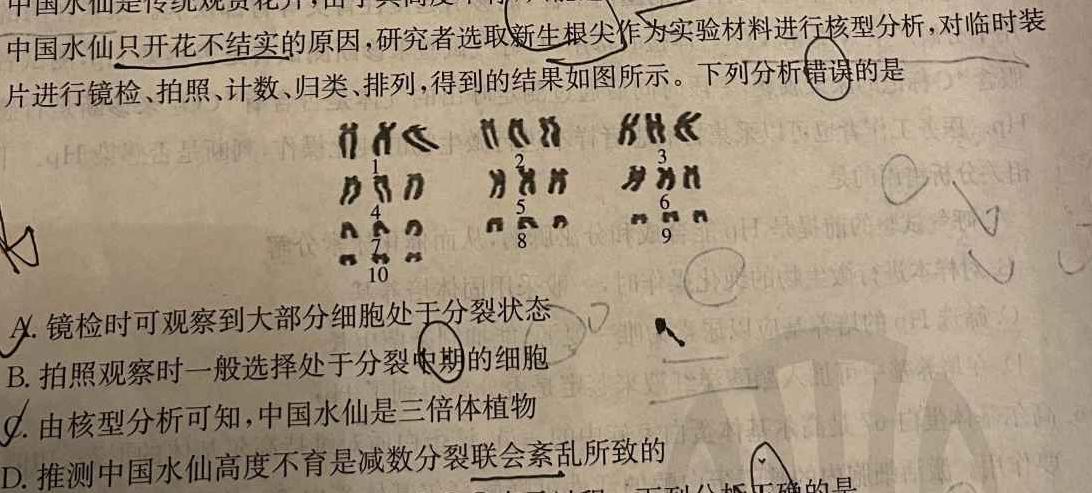 中国水仙是传统观赏花卉,由于其高度不育
中国水仙只开花不结实的原因,研究者选取新生根尖作为实验材料进行核型分析,对临时装
片进行镜检、拍照、计数、归类、排列,得到的结果如图所示。下列分析错误的是
1 2 3
4 5 6
7 8 9
10
A. 镜检时可观察到大部分细胞处于分裂状态
B. 拍照观察时一般选择处于分裂中期的细胞
C. 由核型分析可知,中国水仙是三倍体植物
D. 推测中国水仙高度不育是减数分裂联会紊乱所致的
下列分析正确的是